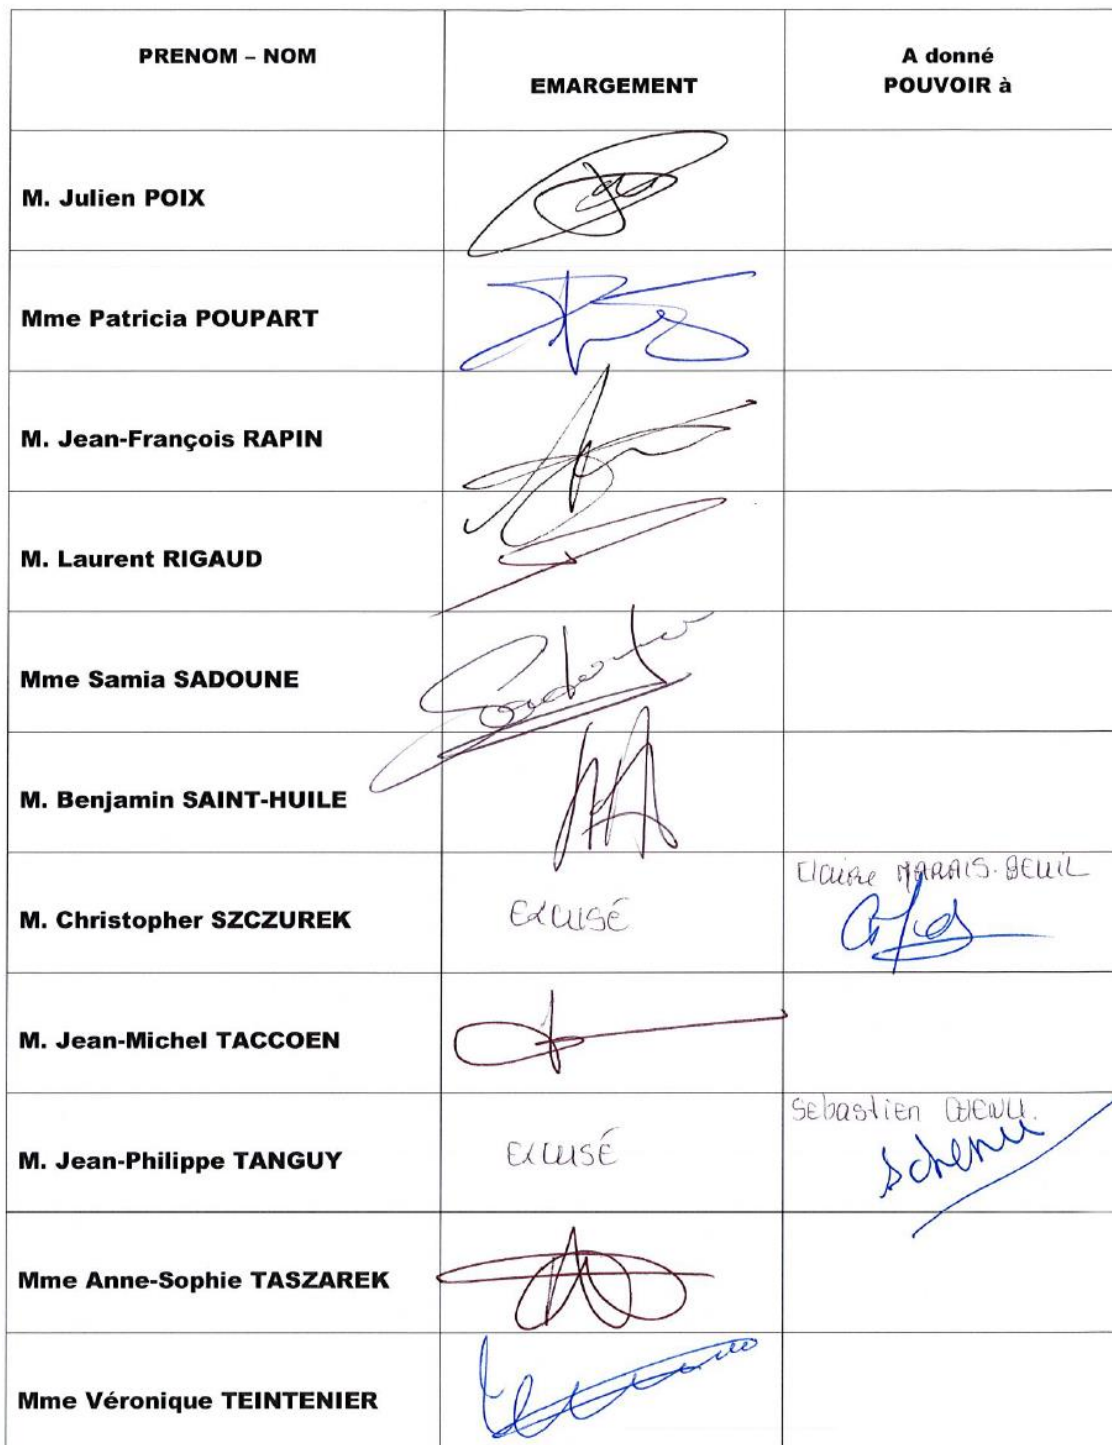 PRENOM – NOM
EMARGEMENT
A donné
POUVOIR à
M. Julien POIX
Mme Patricia POUPART
M. Jean-François RAPIN
M. Laurent RIGAUD
Mme Samia SADOUNE
M. Benjamin SAINT-HUILE
M. Christopher SZCZUREK
EXCUSÉ
Claire MARAIS-BEUIL
M. Jean-Michel TACCOEN
M. Jean-Philippe TANGUY
EXCUSÉ
Sébastien CHENU.
Schenu
Mme Anne-Sophie TASZAREK
Mme Véronique TEINTENIER